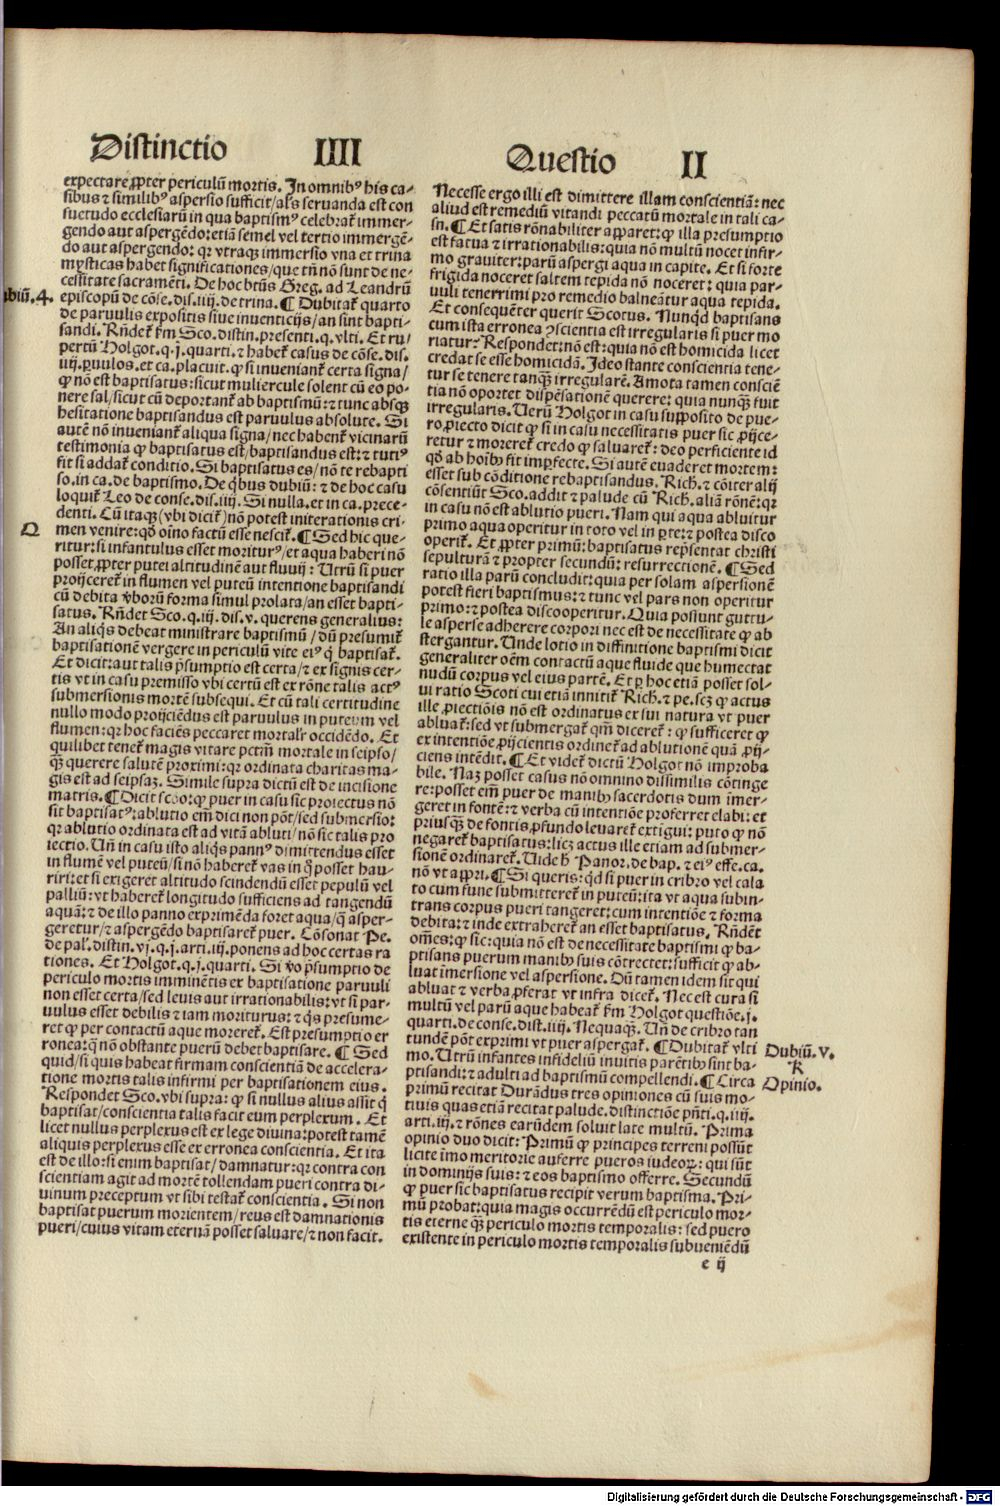 Distinctio IIII Questio II
expectare ꝓpter periculū mortis. In omnibꝰ his ca-
sibus ⁊ similibꝰ aspersio sufficit/als seruanda est con
suetudo ecclesiarū in qua baptismꝰ celebrat̃ immer-
gendo aut aspergēdo: etiā semel vel tertio immergē-
do aut aspergendo: qr vtraqꝫ immersio vna et trina
mysticas habet significationes/que tñ nō sunt de ne-
cessitate sacramēti. De hoc btūs Greg. ad Leandrū
episcopū de cōse. dis. iiij. de trina. ¶ Dubitat̃ quarto
de paruulis expositis siue inuenticijs/an sint bapti-
sandi. Rñdet̃ fm Sco. distin. presenti. q. vlti. Et ru/
pertū Holgot. q. j. quarti. ⁊ habet̃ casus de cōse. dis.
iiij. ꝑuulos. et ca. placuit. ꝙ si inueniant̃ certa signa/
ꝙ nō est baptisatus: sicut muliercule solent cū eo po-
nere sal/sicut cū deportant̃ ab baptismū: ⁊ tunc absqꝫ
hesitatione baptisandus est paruulus absolute. Si
autē nō inueniant̃ aliqua signa/nec habent̃ vicinarū
testimonia ꝙ baptisatus est/baptisandus est: ⁊ tutiꝰ
fit si addat̃ conditio. Si baptisatus es/nō te rebapti
so. in ca. de baptismo. De qͥbus dubiū: ⁊ de hoc casu
loquit̃ Leo de conse. dis. iiij. Si nulla. et in ca. prece-
denti. Cū itaqꝫ (vbi dicit̃) nō potest initerationis cri-
men venire: qd̓ oīno factū esse nescit̃. ¶ Sed hic que-
ritur: si infantulus esset moriturꝰ/et aqua haberi nō
posset ꝓpter putei altitudinē aut fluuij: Utrū si puer
proijceret̃ in flumen vel puteū intentione baptisandi
cū debita v̓borū forma simul prolata/an esset bapti-
satus. Rñdet Sco. q. iij. dis. v. querens generalius:
An aliqͥs debeat ministrare baptismū/dū presumit̃
baptisationē vergere in periculū vite eiꝰ q̇ baptisat̃.
Et dicit: aut talis p̄sumptio est certa/⁊ ex signis cer-
tis vt in casu premisso vbi certū est ex rōne talis actꝰ
submersionis mortē subsequi. Et cū tali certitudine
nullo modo proijciēdus est paruulus in puteum vel
flumen: qr hoc faciēs peccaret mortalr̓ occidēdo. Et
quilibet tenet̃ magis vitare pctm̄ mortale in seipso/
qꝫ̄ querere salutē proximi: qr ordinata charitas ma-
gis est ad seipsaꝫ. Simile supra dictū est de incisione
matris. ¶ Dicit scōo: ꝙ puer in casu sic proiectus nō
sit baptisatꝰ: ablutio em̄ dici non pōt/sed submersio:
qr ablutio ordinata est ad vitā abluti/nō sic talis pro
iectio. Un̄ in casu isto aliqͥs pannꝰ dimittendus esset
in flumē vel puteū/si nō haberet̃ vas in q̊ posset hau-
riri: et si exigeret altitudo scindendū esset pepulū vel
palliū: vt haberet̃ longitudo sufficiens ad tangendū
aquā: ⁊ de illo panno exprimēda foret aqua/q̄ asper-
geretur/⁊ aspergēdo baptisaret̃ puer. Cōsonat Pe.
de pal̓. distin. vj. q. j. arti. iij. ponens ad hoc certas ra
tiones. Et Holgot. q. j. quarti. Si v̓o p̄sumptio de
periculo mortis imminētis ex baptisatione paruuli
non esset certa/sed leuis aut irrationabilis: vt si par-
uulus esset debilis ⁊ iam moriturus: ⁊ qͥs presume-
ret ꝙ per contactū aque moreret̃. Est presumptio er
ronea: q̄ nō obstante puerū debet baptisare. ¶ Sed
quid/si quis habeat firmam conscientiā de accelera-
tione mortis talis infirmi per baptisationem eius.
Respondet Sco. vbi supra: ꝙ si nullus alius assit q̇
baptisat/conscientia talis facit eum perplexum. Et
licet nullus perplexus est ex lege diuina: potest tamē
aliquis perplexus esse ex erronea conscientia. Et ita
est de illo: si enim baptisat/damnatur: qr contra con
scientiam agit ad mortē tollendam pueri contra di-
uinum preceptum vt sibi testat̃ conscientia. Si non
baptisat puerum morientem/reus est damnationis
pueri/cuius vitam eternā posset saluare/⁊ non facit.
biū. 4.
Q
Necesse ergo illi est dimittere illam conscientiā: nec
aliud est remediū vitandi peccatū mortale in tali ca-
su. ¶ Et satis rōnabiliter apparet: ꝙ illa presumptio
est fatua ⁊ irrationabilis: quia nō multū nocet infir-
mo grauiter: parū aspergi aqua in capite. Et si forte
frigida noceret saltem tepida nō noceret: quia par-
uuli tenerrimi pro remedio balneātur aqua tepida.
Et consequēter querit Scotus. Nunqͩ baptisans
cum ista erronea ꝯscientia est irregularis si puer mo
riatur: Respondet: nō est: quia nō est homicida licet
credat se esse homicidā. Ideo stante conscientia tene-
tur se tenere tanqꝫ̄ irregularē. Amota tamen consciē
tia nō oportet dispēsationē querere: quia nunqꝫ̄ fuit
irregularis. Uerū Holgot in casu supposito de pue-
ro ꝓiecto dicit ꝙ si in casu necessitatis puer sic ꝓijce-
retur ⁊ moreret̃ credo ꝙ saluaret̃: deo perficiente id
qd̓ ab hoībꝰ fit imꝑfecte. Si autē euaderet mortem:
esset sub cōditione rebaptisandus. Rich. ⁊ cōiter alij
cōsentiūt Sco. addit ⁊ palude cū Rich. aliā rōnē: qr
in casu nō est ablutio pueri. Nam qui aqua abluitur
primo aqua operitur in toto vel in ꝑte: ⁊ postea disco
operit̃. Et ꝓpter primū: baptisatus rep̄sentat christi
sepulturā ⁊ propter secundū: resurrectionē. ¶ Sed
ratio illa parū concludit: quia per solam aspersionē
potest fieri baptismus: ⁊ tunc vel pars non operitur
primo: ⁊ postea discooperitur. Quia possunt guttu-
le asperse adherere corpori nec est de necessitate ꝙ ab
stergantur. Unde lotio in diffinitione baptismi dicit
generaliter oēm contactū aque fluide que humectat
nudū corpus vel eius partē. Et ꝑ hoc etiā posset sol-
ui ratio Scoti cui etiā innitit̃ Rich. ⁊ pe. scꝫ ꝙ actus
ille ꝓiectiōis nō est ordinatus ex sui natura vt puer
abluat̃: sed vt submergat̃ qm̄ diceret̃: ꝙ sufficeret ꝙ
ex intentiōe ꝓijcientis ordinet̃ ad ablutionē quā ꝓij-
ciens intēdit. ¶ Et videt̃ dictū Holgot nō improba
bile. Naꝫ posset casus nō omnino dissimilis cōtinge
re: posset em̄ puer de manibꝰ sacerdotis dum īmer-
geret in fontē: ⁊ verba cū intentiōe proferret elabi: et
priusqꝫ̄ de fontis ꝓfundo leuaret̃ extigui: puto ꝙ nō
negaret̃ baptisatus: licꝫ actus ille etiam ad submer-
sionē ordinaret̃. Uide h̄ Panor. de bap. ⁊ eiꝰ effe. ca.
nō vt appri. ¶ Si queris: qͥd si puer in cribro vel cala
to cum fune submitteret̃ in puteū: ita vt aqua subin-
trans corpus pueri tangeret: cum intentiōe ⁊ forma
debita: ⁊ inde extraheret̃ an esset baptisatus. Rñdēt
oēs: ꝙ sic: quia nō est de necessitate baptismi ꝙ ba-
ptisans puerum manibꝰ suis cōtrectet: sufficit ꝙ ab-
luat īmersione vel aspersione. Dū tamen idem sit qui
abluat ⁊ verba ꝓferat vt infra dicet̃. Nec est cura si
multū vel parū aque habeat̃ fm Holgot questiōe. j.
quarti. de conse. dist. iiij. Nequaqꝫ. Un̄ de cribro tan
tundē pōt exprimi vt puer aspergat̃. ¶ Dubitat̃ vlti
mo. Utrū infantes infideliū inuitis parētibꝰ sint ba-
ptisandi: ⁊ adulti ad baptismū compellendi. ¶ Circa
primū recitat Durādus tres opiniones cū suis mo-
tiuis quas etiam recitat palude. distinctiōe pn̄ti. q. iiij.
arti. iij. ⁊ rōnes earūdem soluit late multū. Prima
opinio duo dicit: Primū ꝙ principes terreni possūt
licite īmo meritorie auferre pueros iudeoꝝ: qui sūt
in dominijs suis: ⁊ eos baptismo offerre. Secundū
ꝙ puer sic baptisatus recipit verum baptisma. Pri-
mū probat: quia magis occurrēdū est periculo mor-
tis eterne qꝫ̄ periculo mortis temporalis: sed puero
existente in periculo mortis temporalis subueniēdū
Dubiū. V.
R
Opinio.
e ij
Digitalisierung gefördert durch die Deutsche Forschungsgemeinschaft - DFG